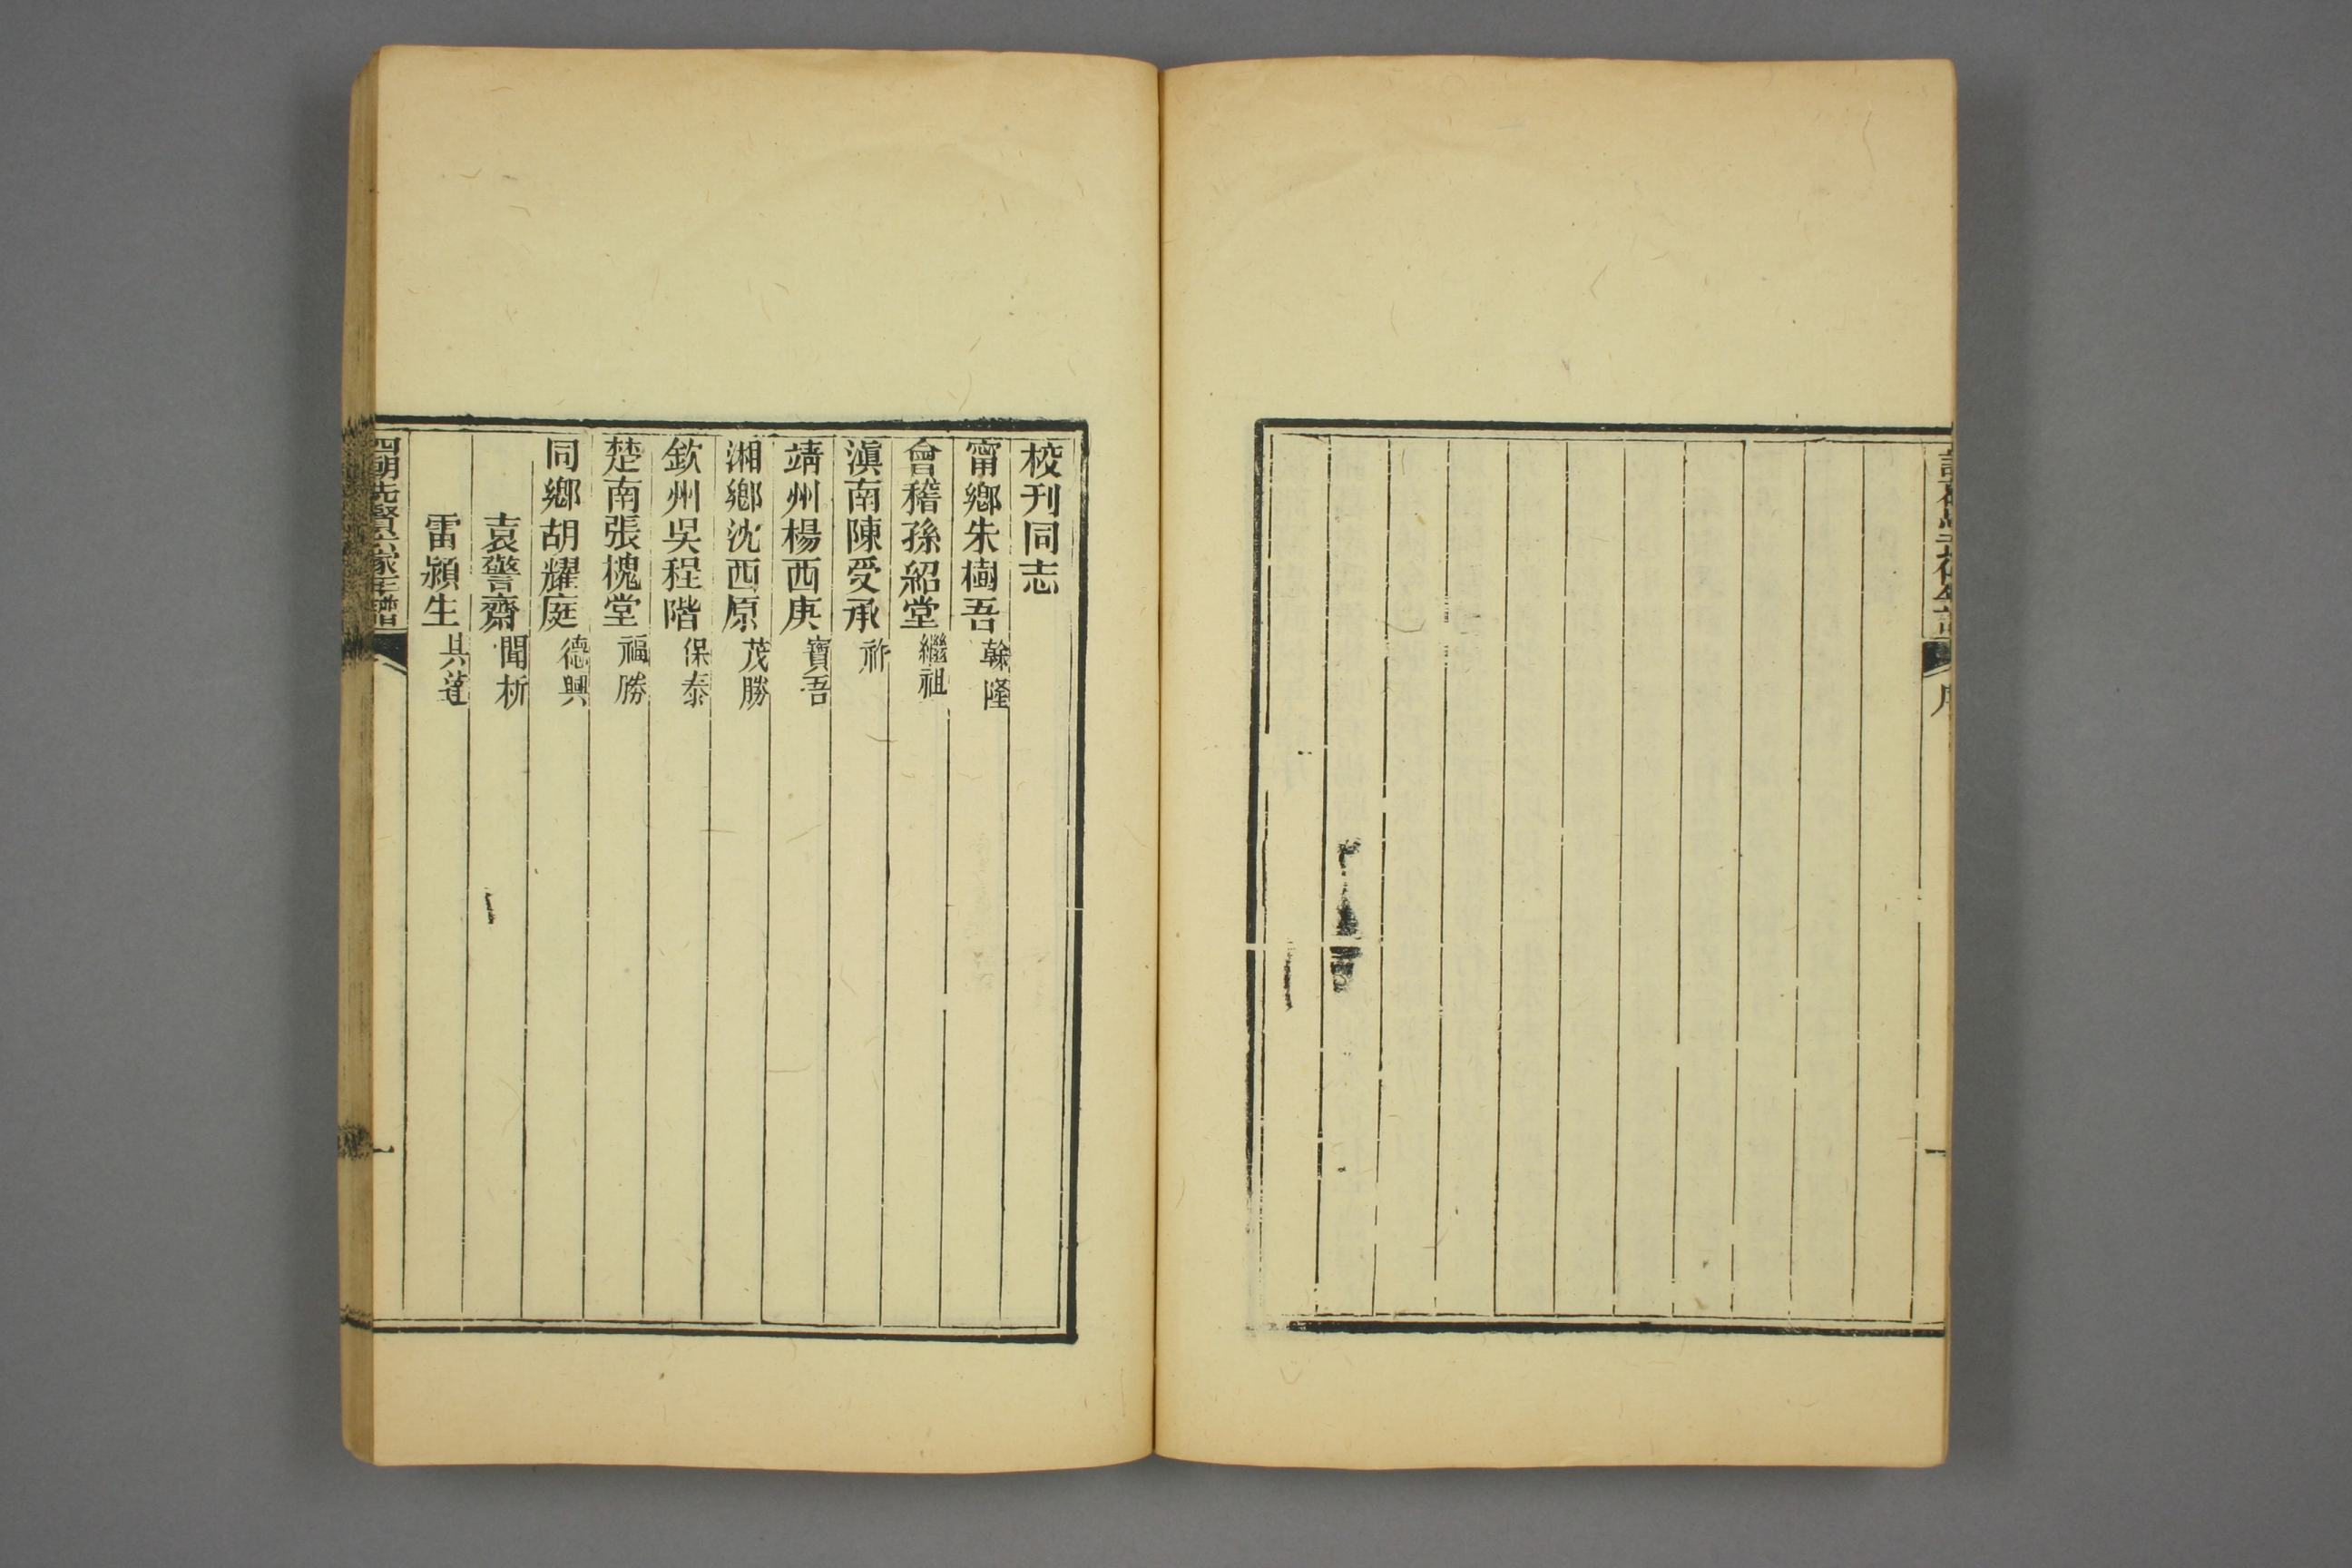 序
一
校刊同志
甯鄉朱樹吾榦隆
會稽孫紹堂繼祖
滇南陳受承祚
靖州楊西庚寶吾
湘鄉沈西原茂勝
欽州吳程階保泰
楚南張槐堂福勝
同鄉胡耀庭德興
袁警齋聞析
雷潁生其蓬
四朝先賢六家年譜
一